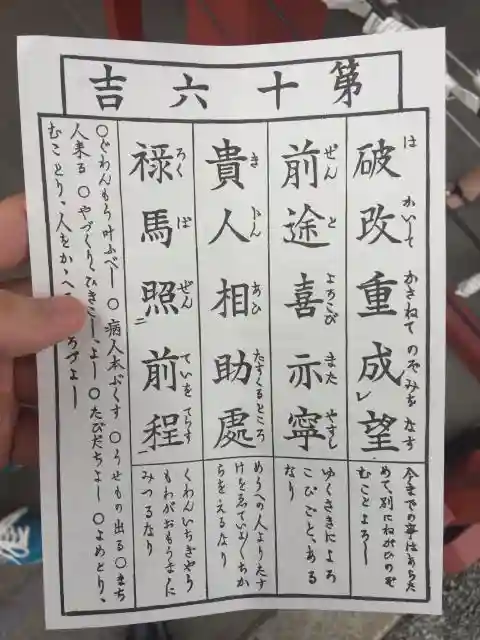 第十六吉
破改重成望
は かいして かさねて のぞみを なす
今までの事はあらた
めて別にねがひのぞ
むことよろし
前途喜亦寧
ぜん と よろこび また やすし
ゆくさきによろ
こびごと、ある
なり
貴人相助處
き にん あひ たすくるところ
めうへの人よりたす
けをゑていよ〱ちか
らをえるなり
禄馬照二前程一
ろく ば ぜん ていを てらす
もわがおもうまゝに
みつるなり
○ぐわんもう叶ふべし ○病人本ぶくす ○うせもの出る ○まち
人来る ○やづくり、ひきこし、よし ○たびだちよし ○よめとり、
むことり、人をかゝへ よし